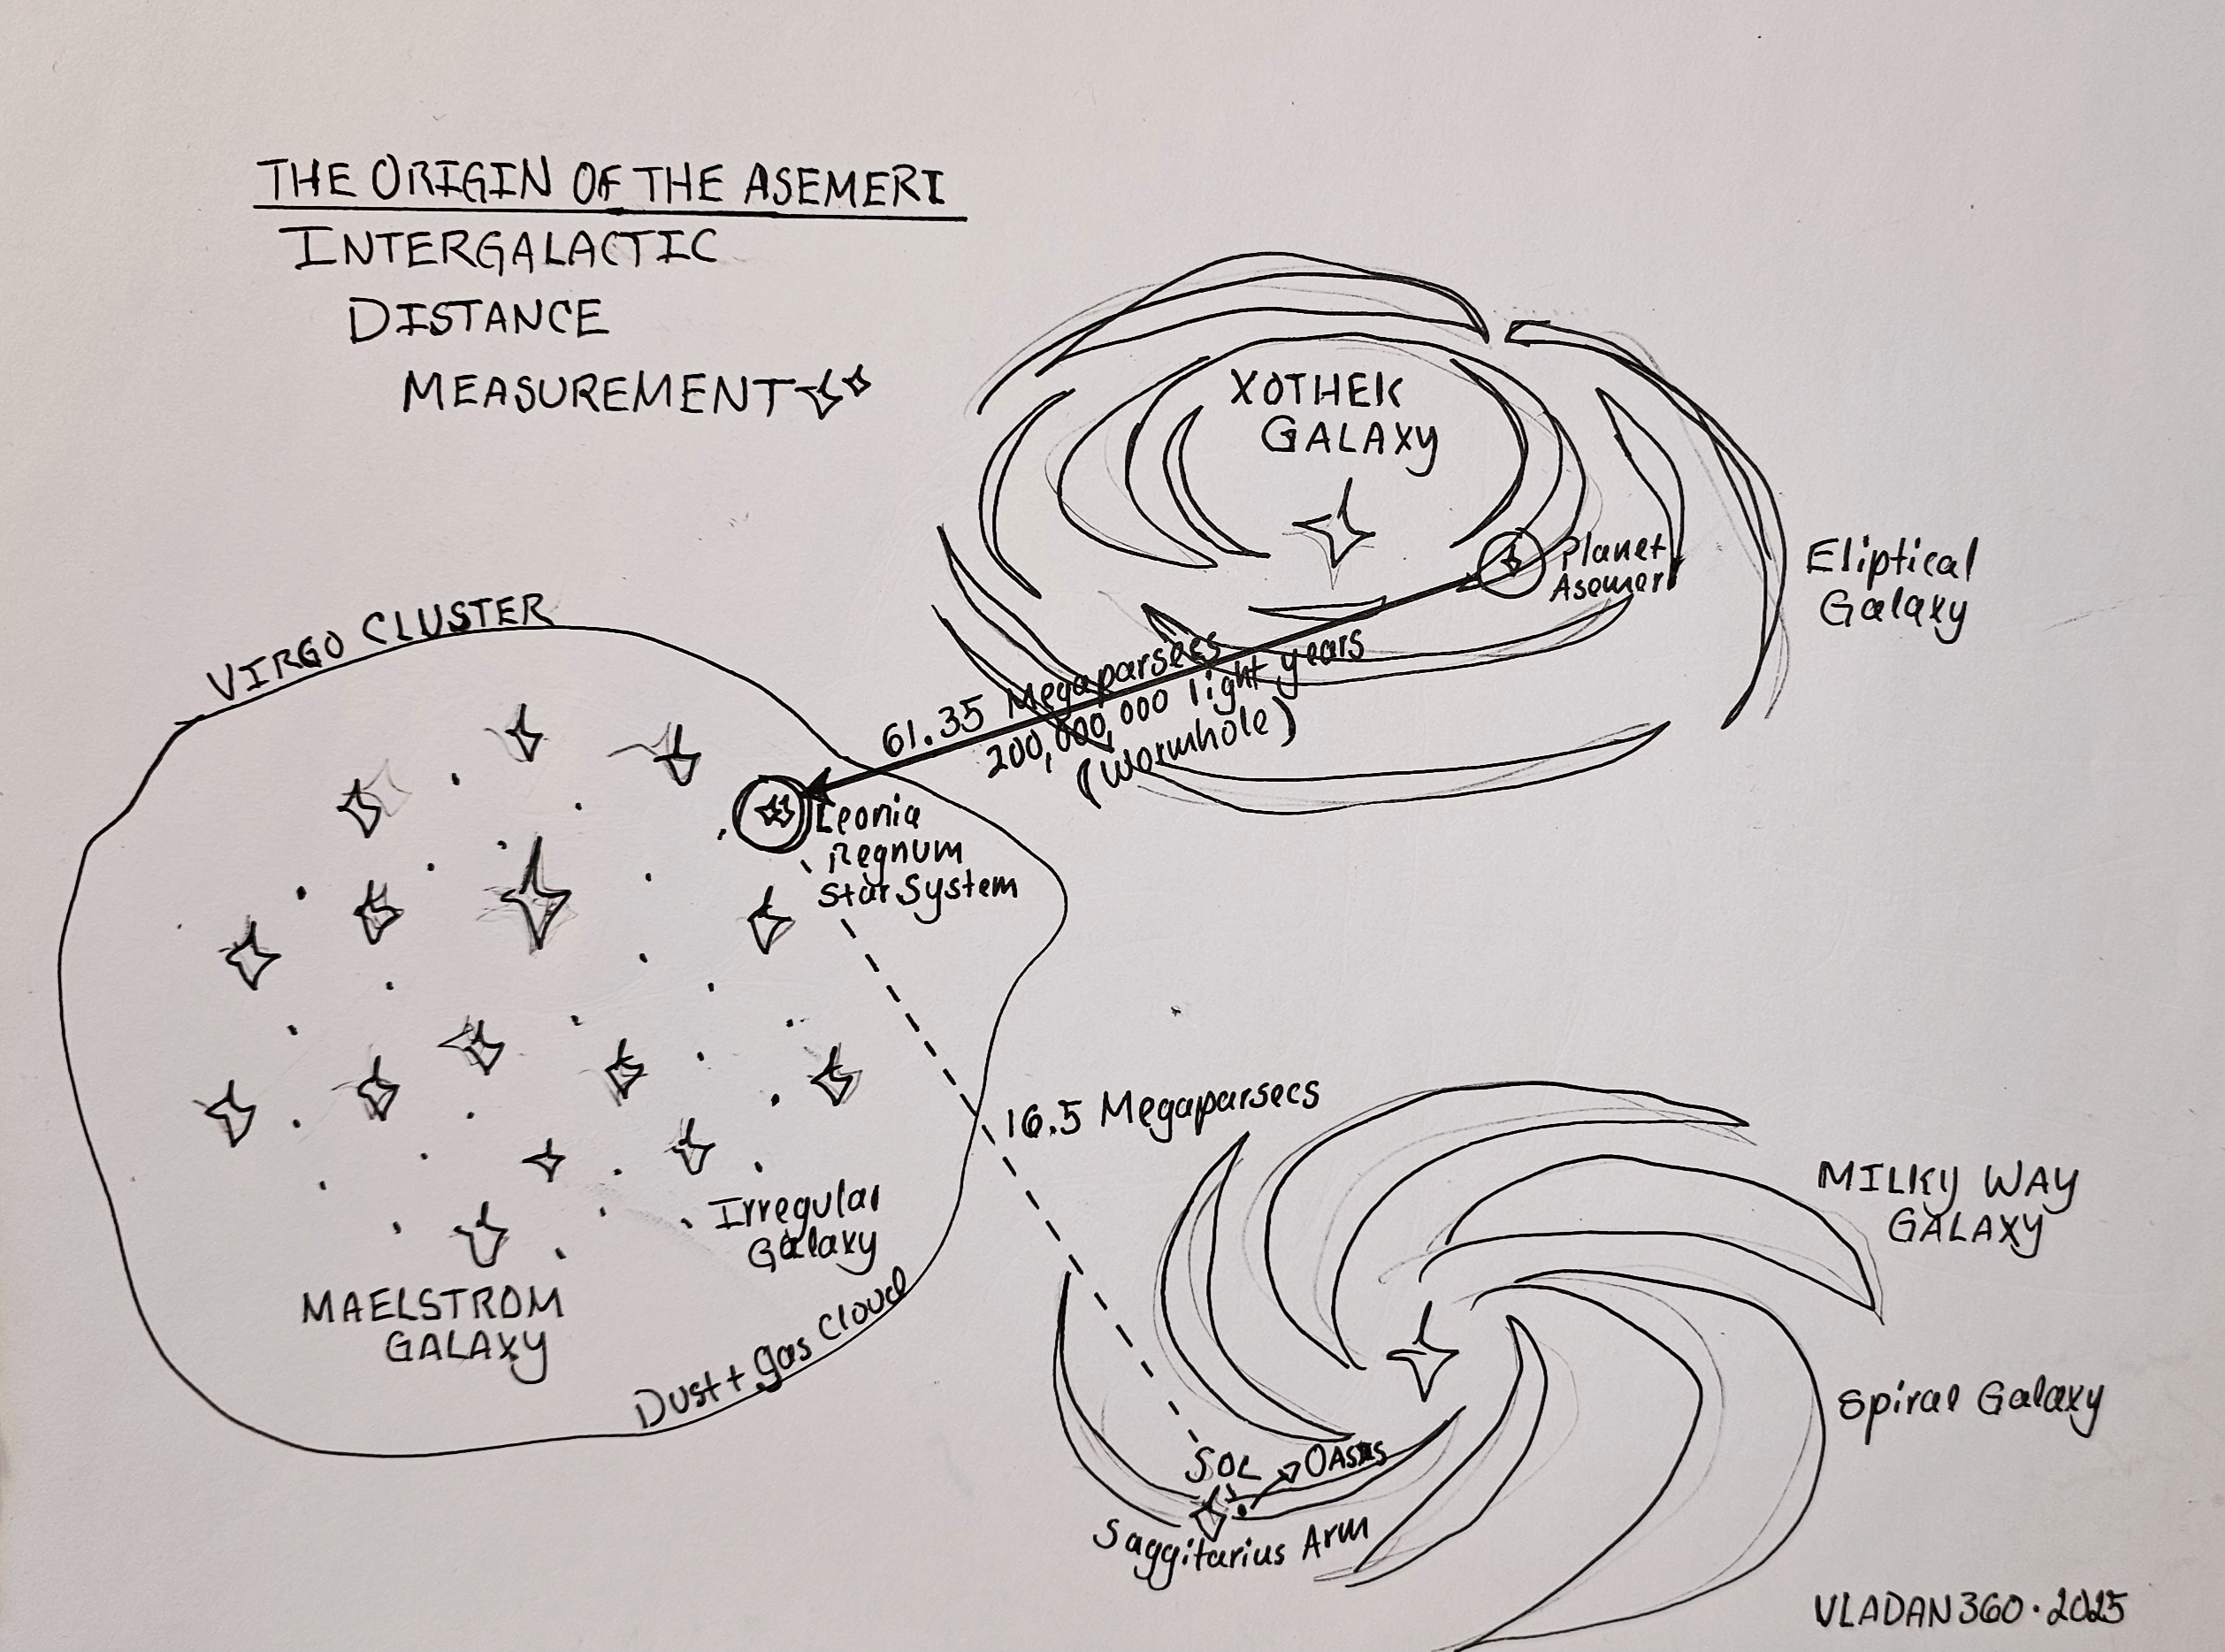 THE ORIGIN OF THE ASEMERI
INTERGALACTIC
DISTANCE
MEASUREMENT
XOTHEK
GALAXY
Planet
Asemeri
Eliptical
Galaxy
VIRGO CLUSTER
61.35 Megaparsecs
200,000,000 light years
(Wormhole)
Leonia
Regnum
Star System
16.5 Megaparsecs
MILKY WAY
GALAXY
Irregular
Galaxy
MAELSTROM
GALAXY
Dust + gas cloud
Spiral Galaxy
SOL
OASIS
Saggitarius Arm
VLADAN360 · 2025